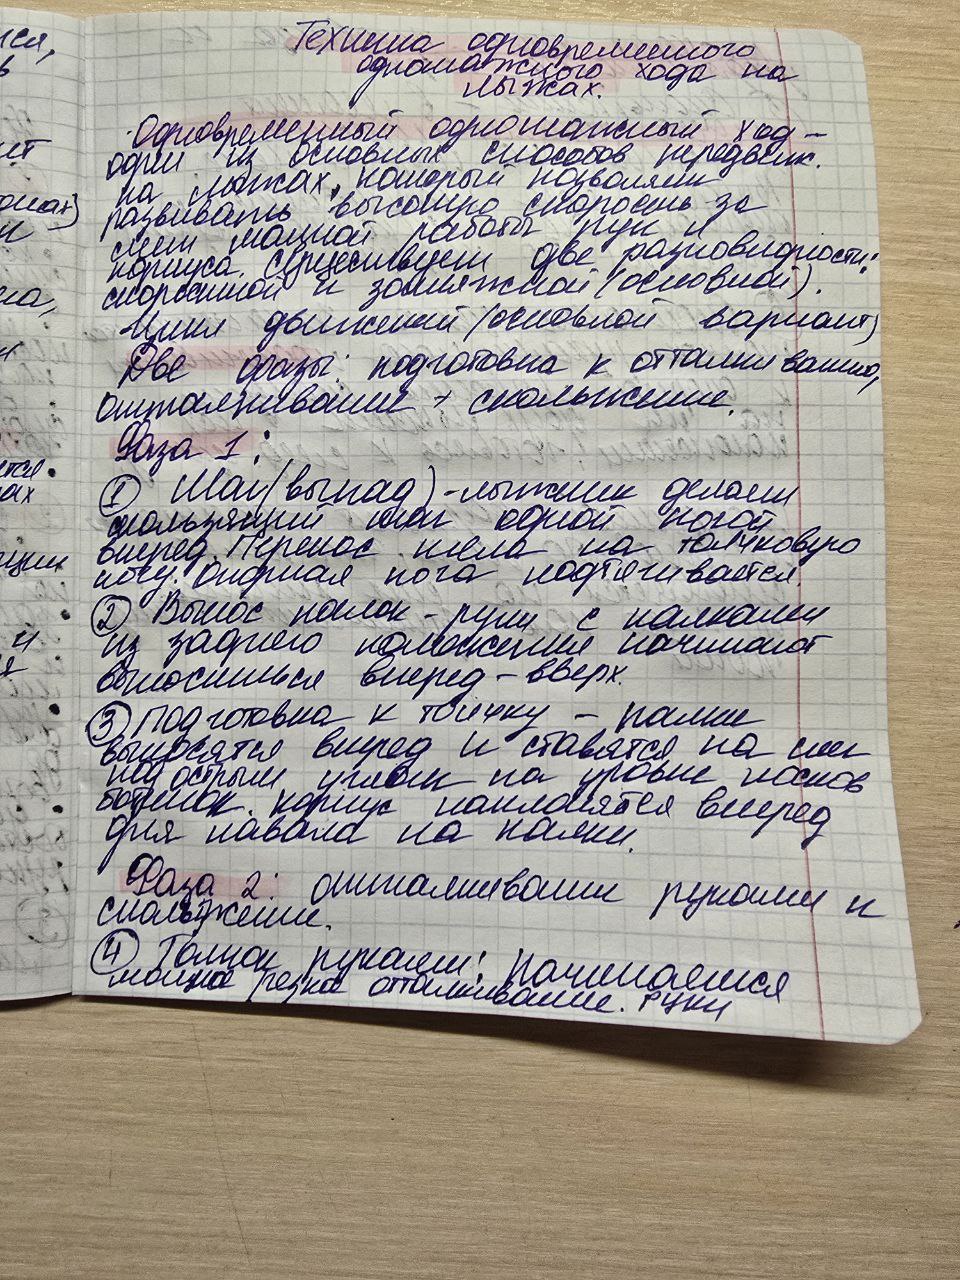 ися,
в
Техника одновременного
одношажного хода на
лыжах.
Одновременный одношажный ход –
один из основных способов передвиж.
на лыжах, который позволяет
развивать высокую скорость за
счет мощной работы рук и
корпуса. Существует две разновидности:
скоростной и затяжной (основной).
Цикл движений (основной вариант)
Две фазы: подготовка к отталкиванию,
отталкивание + скольжение.
Фаза 1:
① Шаг (выпад) – лыжник делает
скользящий шаг одной ногой
вперед. Перенос тела на толчковую
ногу. Опорная нога подтягивается
② Вынос палок – руки с палками
из заднего положения начинают
выноситься вперед – вверх.
③ Подготовка к толчку – палки
выносятся вперед и ставятся на снег
под острым углом на уровне носков
ботинок. Корпус наклоняется вперед
для навала на палки.
Фаза 2: отталкивание руками и
скольжение.
④ Толчок руками: начинается
мощное резкое отталкивание. Руки